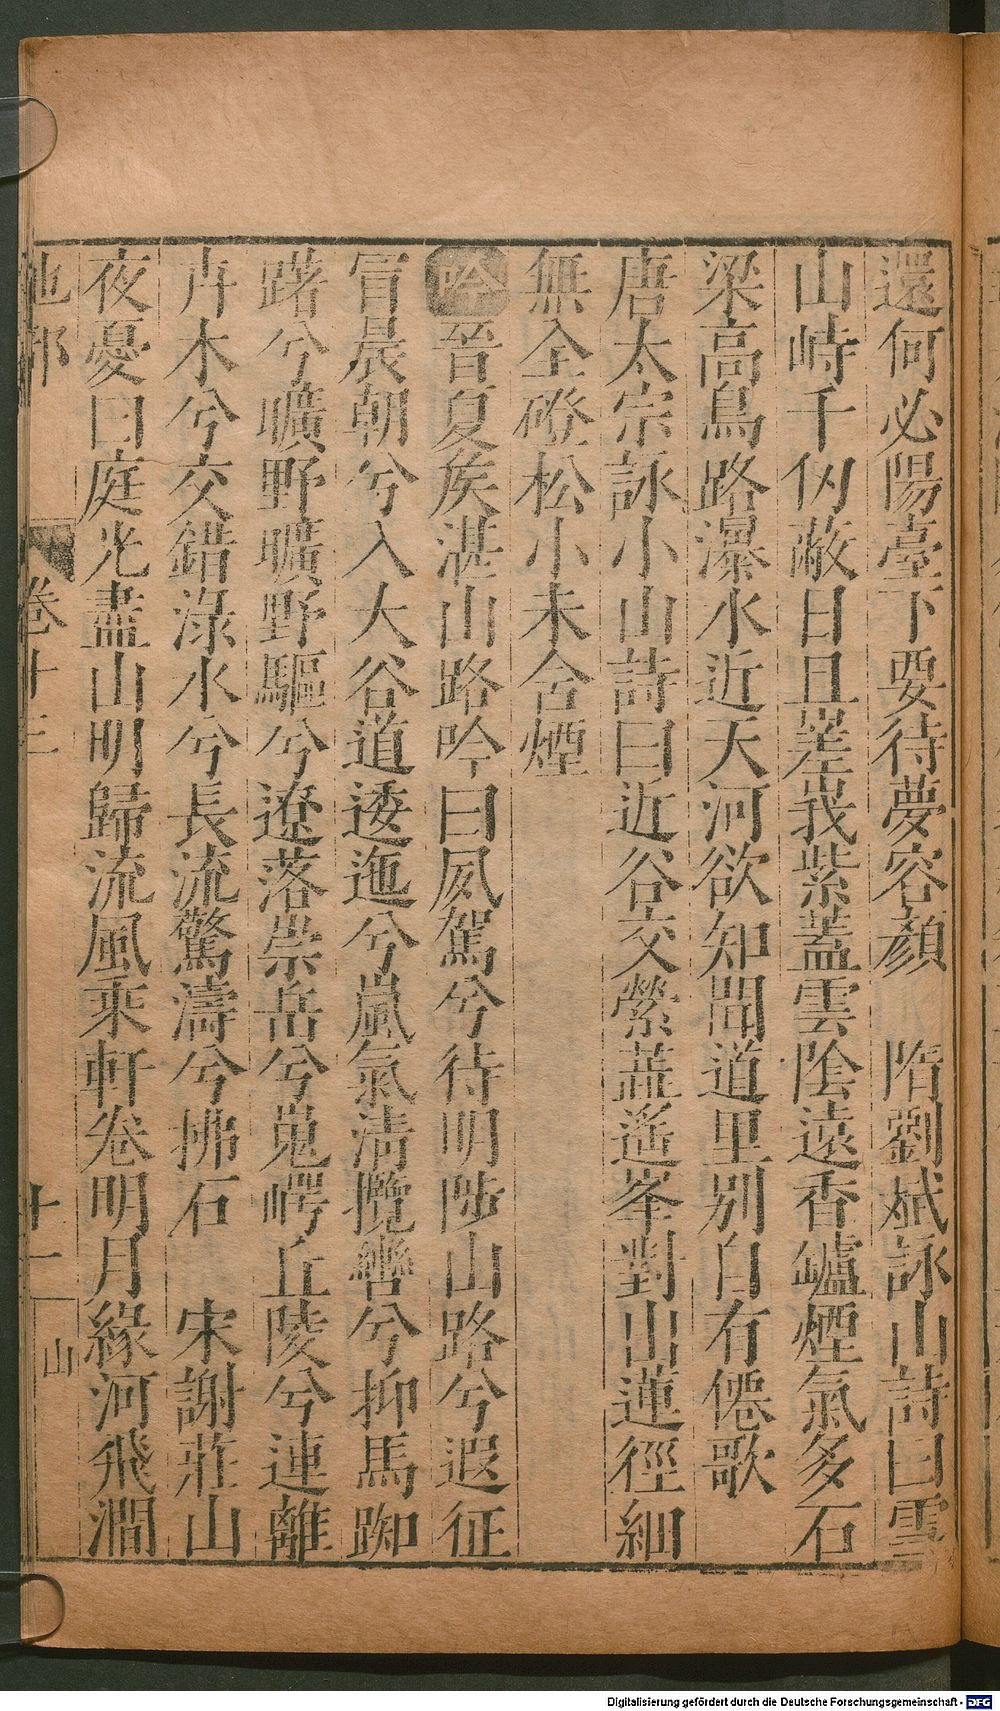 還何必陽臺下要待夢容顏　隋劉斌詠山詩曰雲
山峙千仞蔽日且嵳峩紫蓋雲陰遠香鑪煙氣多石
梁高鳥路瀑水近天河欲知聞道里別自有僊歌
唐太宗詠小山詩曰近谷交縈蘂遙峯對出蓮徑細
無全磴松小未含煙
吟晉夏侯湛山路吟曰夙駕兮待明陟山路兮遐征
冒晨朝兮入大谷道逶迤兮嵐氣清攬轡兮抑馬踟
躇兮曠野曠野驅兮遼落崇岳兮嵬崿丘陵兮連離
卉木兮交錯淥水兮長流驚濤兮拂石　宋謝莊山
夜憂曰庭光盡山明歸流風乘軒卷明月緣河飛澗
地部　卷十三　十一　山
Digitalisierung gefördert durch die Deutsche Forschungsgemeinschaft - DFG